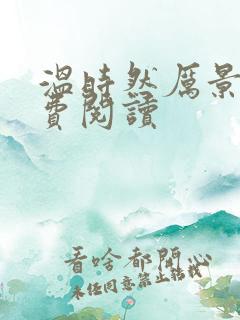 溫時然厲景
費閱讀
看啥都閑心
未任同意禁止轉載